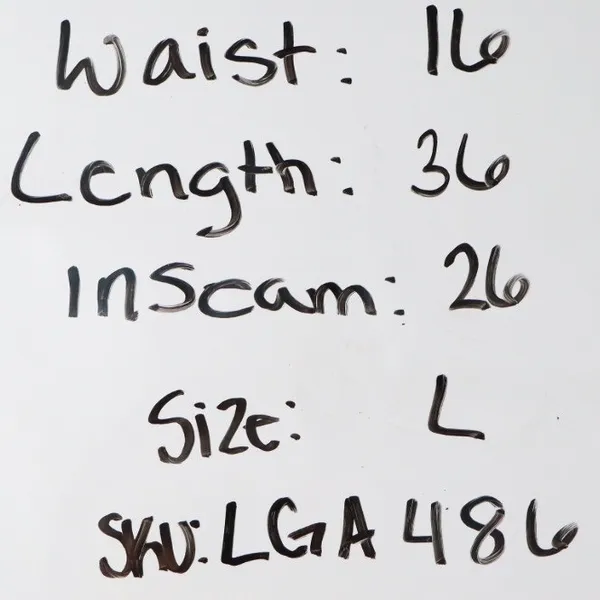 Waist: 16
Length: 36
Inseam: 26
Size: L
SKU: LGA486